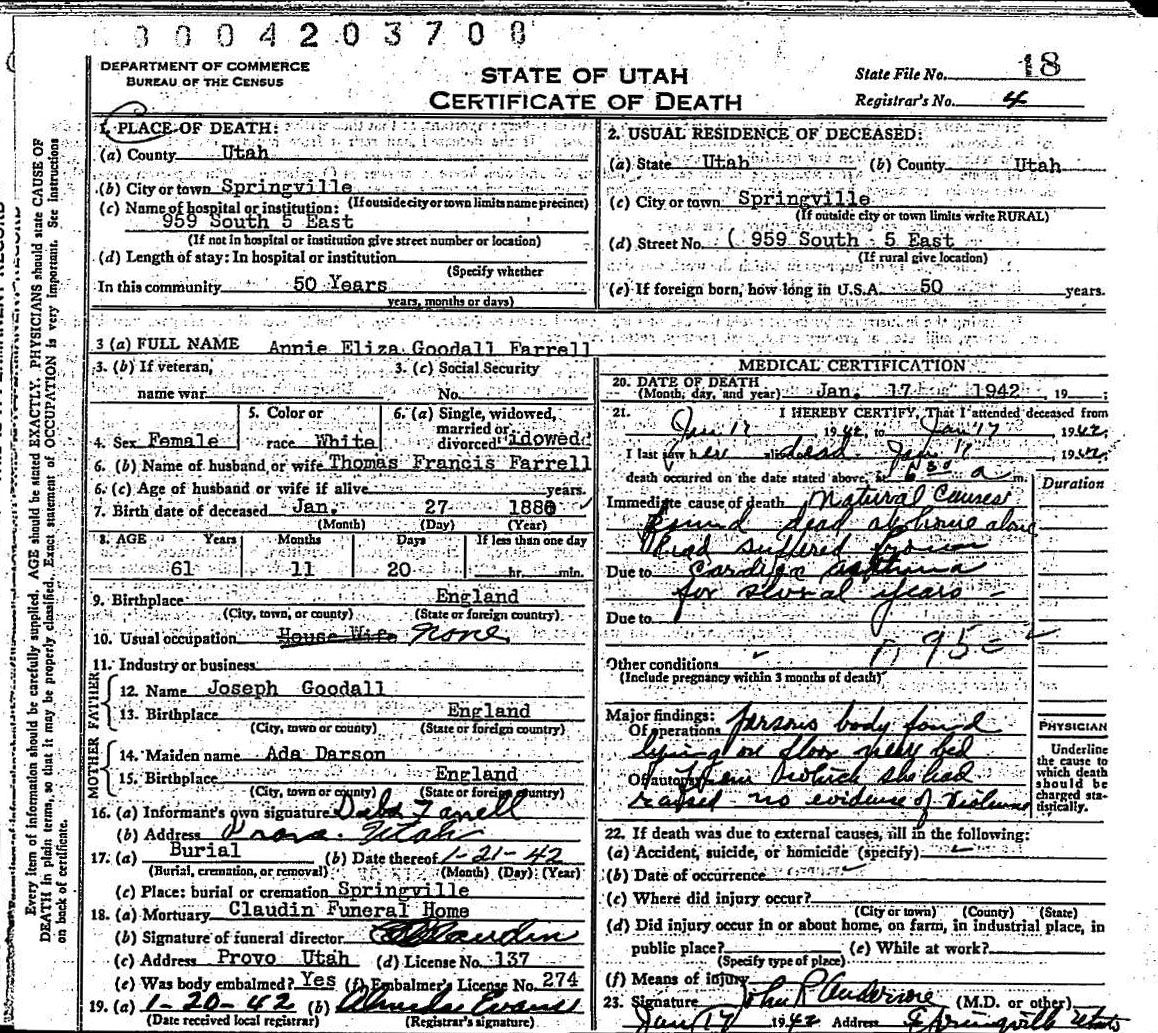 0004203700
DEPARTMENT OF COMMERCE
BUREAU OF THE CENSUS
STATE OF UTAH
CERTIFICATE OF DEATH
State File No. 18
Registrar's No. 4
1. PLACE OF DEATH:
(a) County Utah
(b) City or town Springville
(If outside city or town limits name precinct)
(c) Name of hospital or institution:
959 South 5 East
(If not in hospital or institution give street number or location)
(d) Length of stay: In hospital or institution
(Specify whether
In this community 50 Years
years, months or days)
2. USUAL RESIDENCE OF DECEASED:
(a) State Utah (b) County Utah
(c) City or town Springville
(If outside city or town limits write RURAL)
(d) Street No. ( 959 South 5 East
(If rural give location)
(e) If foreign born, how long in U.S.A. 50 years.
3 (a) FULL NAME Annie Eliza Goodall Farrell
3. (b) If veteran,
name war
3. (c) Social Security
No.
4. Sex Female
5. Color or
race White
6. (a) Single, widowed,
married or
divorced idowed
6. (b) Name of husband or wife Thomas Francis Farrell
6. (c) Age of husband or wife if alive years.
7. Birth date of deceased Jan. 27 1880
(Month) (Day) (Year)
8. AGE Years Months Days If less than one day
61 11 20 hr. min.
9. Birthplace England
(City, town, or county) (State or foreign country)
10. Usual occupation House Wife None
11. Industry or business
FATHER
12. Name Joseph Goodall
13. Birthplace England
(City, town or county) (State or foreign country)
MOTHER
14. Maiden name Ada Darson
15. Birthplace England
(City, town or county) (State or foreign country)
16. (a) Informant's own signature Farrell
(b) Address Provo. Utah
17. (a) Burial (b) Date thereof 1-21-42
(Burial, cremation, or removal) (Month) (Day) (Year)
(c) Place: burial or cremation Springville
18. (a) Mortuary Claudin Funeral Home
(b) Signature of funeral director
(c) Address Provo Utah (d) License No. 137
(e) Was body embalmed? Yes (f) Embalmer's License No. 274
19. (a) 1-20-42 (b) Evans
(Date received local registrar) (Registrar's signature)
MEDICAL CERTIFICATION
20. DATE OF DEATH
(Month, day, and year) Jan. 17 1942, 19
21. I HEREBY CERTIFY, That I attended deceased from
Jan 17 1942, to Jan 17 1942
I last saw her alive dead Jan 17 1942
death occurred on the date stated above, at 6 30 a m.
Duration
Immediate cause of death Natural Causes
found dead at home alone
had suffered from
Due to cardiac asthma
for several years -
Due to
95
Other conditions
(Include pregnancy within 3 months of death)
Major findings:
Of operations persons body found
lying on floor near bed
Of autopsy from which she had
raised no evidence of Violence
PHYSICIAN
Underline
the cause to
which death
should be
charged sta-
tistically.
22. If death was due to external causes, fill in the following:
(a) Accident, suicide, or homicide (specify)
(b) Date of occurrence
(c) Where did injury occur?
(City or town) (County) (State)
(d) Did injury occur in or about home, on farm, in industrial place, in
public place? (e) While at work?
(Specify type of place)
(f) Means of injury
23. Signature John R Anderson (M.D. or other)
Jan 17 1942 Address Springville Utah
Every item of information should be carefully supplied. AGE should be stated EXACTLY. PHYSICIANS should state CAUSE OF
DEATH in plain terms, so that it may be properly classified. Exact statement of OCCUPATION is very important. See instructions
on back of certificate.